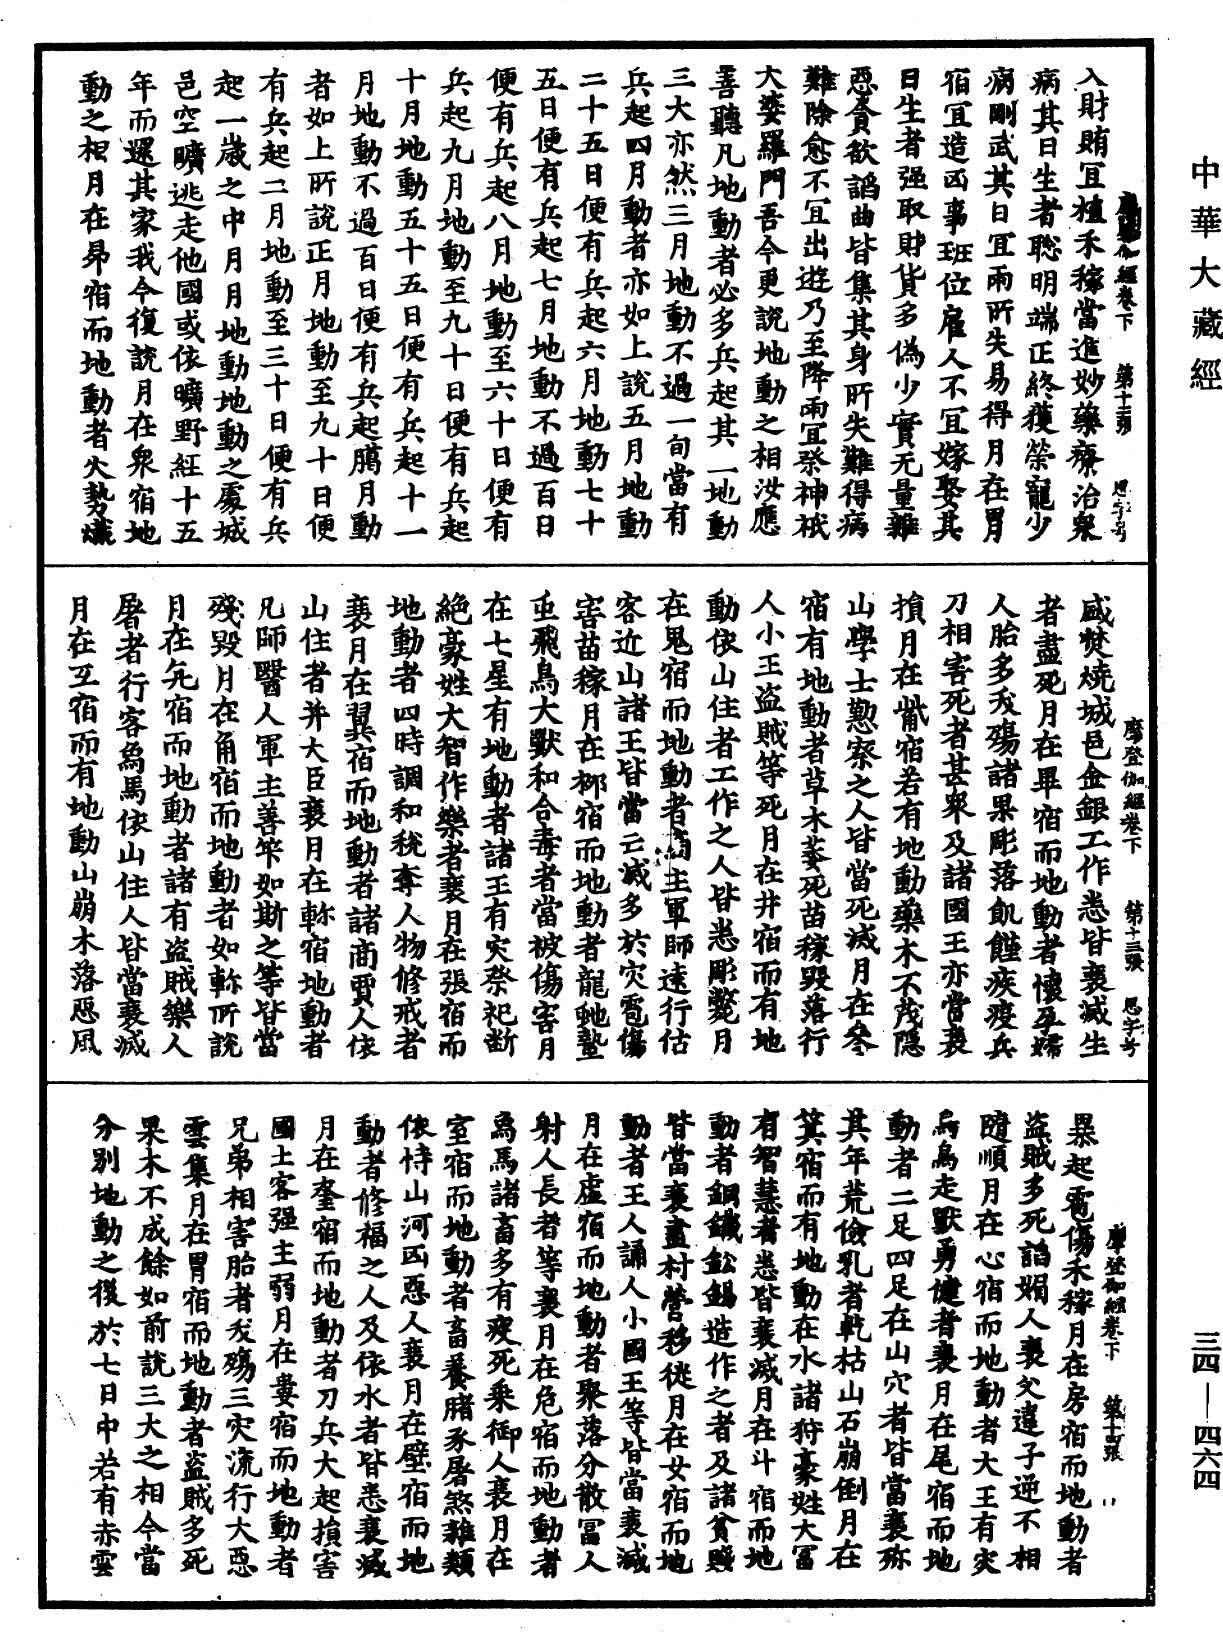 中華大藏經
摩登伽經卷下 第十二張 思字号
入財賄宜植禾稼當進妙藥療治衆
病其日生者聡明端正終獲榮寵少
病剛武其日宜雨所失易得月在胃
宿宜造凶事班位雇人不宜嫁娶其
日生者强取財貨多偽少實无量雜
惡貪欲謟曲皆集其身所失難得病
難除愈不宜出遊乃至降雨宜祭神祇
大婆羅門吾今更説地動之相汝應
善聽凡地動者必多兵起其一地動
三大亦然三月地動不過一旬當有
兵起四月動者亦如上說五月地動
二十五日便有兵起六月地動七十
五日便有兵起七月地動不過百日
便有兵起八月地動至六十日便有
兵起九月地動至九十日便有兵起
十月地動五十五日便有兵起十一
月地動不過百日便有兵起臈月動
者如上所說正月地動至九十日便
有兵起二月地動至三十日便有兵
起一歲之中月月地動地動之處城
邑空曠逃走他國或依曠野經十五
年而還其家我今復說月在衆宿地
動之相月在昴宿而地動者火勢熾
摩登伽經卷下 第十三張 思字号
盛焚燒城邑金銀工作悉皆衰滅生
者盡死月在畢宿而地動者懷孕婦
人胎多夭殤諸果彫落飢饉疾疫兵
刀相害死者甚衆及諸國王亦當衰
損月在觜宿若有地動藥木不茂隱
山學士懃察之人皆當死滅月在參
宿有地動者草木萎死苗稼毀落行
人小王盗賊等死月在井宿而有地
動依山住者工作之人皆悉彫斃月
在鬼宿而地動者商主軍師遠行估
客近山諸王皆當亡滅多於灾雹傷
害苗稼月在柳宿而地動者龍虵蟄
虫飛鳥大獸和合毒者當被傷害月
在七星有地動者諸王有灾祭祀斷
絶豪姓大智作樂者衰月在張宿而
地動者四時調和稅奪人物修戒者
衰月在翼宿而地動者諸商賈人依
山住者并大臣衰月在軫宿地動者
凡師醫人軍主善筭如斯之等皆當
殘毀月在角宿而地動者如軫所說
月在亢宿而地動者諸有盗賊樂人
屠者行客烏馬依山住人皆當衰滅
月在互宿而有地動山崩木落惡風
摩登伽經卷下 第十四張
暴起雹傷禾稼月在房宿而地動者
盗賊多死謟媚人衰父違子逆不相
隨順月在心宿而地動者大王有灾
烏鳥走獸勇健者衰月在尾宿而地
動者二足四足在山穴者皆當衰殄
其年荒儉乳者乾枯山石崩倒月在
箕宿而有地動在水諸狩豪姓大冨
有智慧者悉皆衰滅月在斗宿而地
動者銅鐵鈆錫造作之者及諸貧賤
皆當衰盡村營移徙月在女宿而地
動者王人誦人小國王等皆當衰滅
月在虛宿而地動者聚落分散冨人
射人長者等衰月在危宿而地動者
烏馬諸畜多有疫死乘御人衰月在
室宿而地動者畜養賭豕屠煞雜類
依恃山河凶惡人衰月在壁宿而地
動者修福之人及依水者皆悉衰滅
月在奎宿而地動者刀兵大起損害
國土客强主弱月在婁宿而地動者
兄弟相害胎者夭殤三灾流行大惡
雲集月在胃宿而地動者盗賊多死
果木不成餘如前說三大之相今當
分別地動之後於七日中若有赤雲
三四—四六四